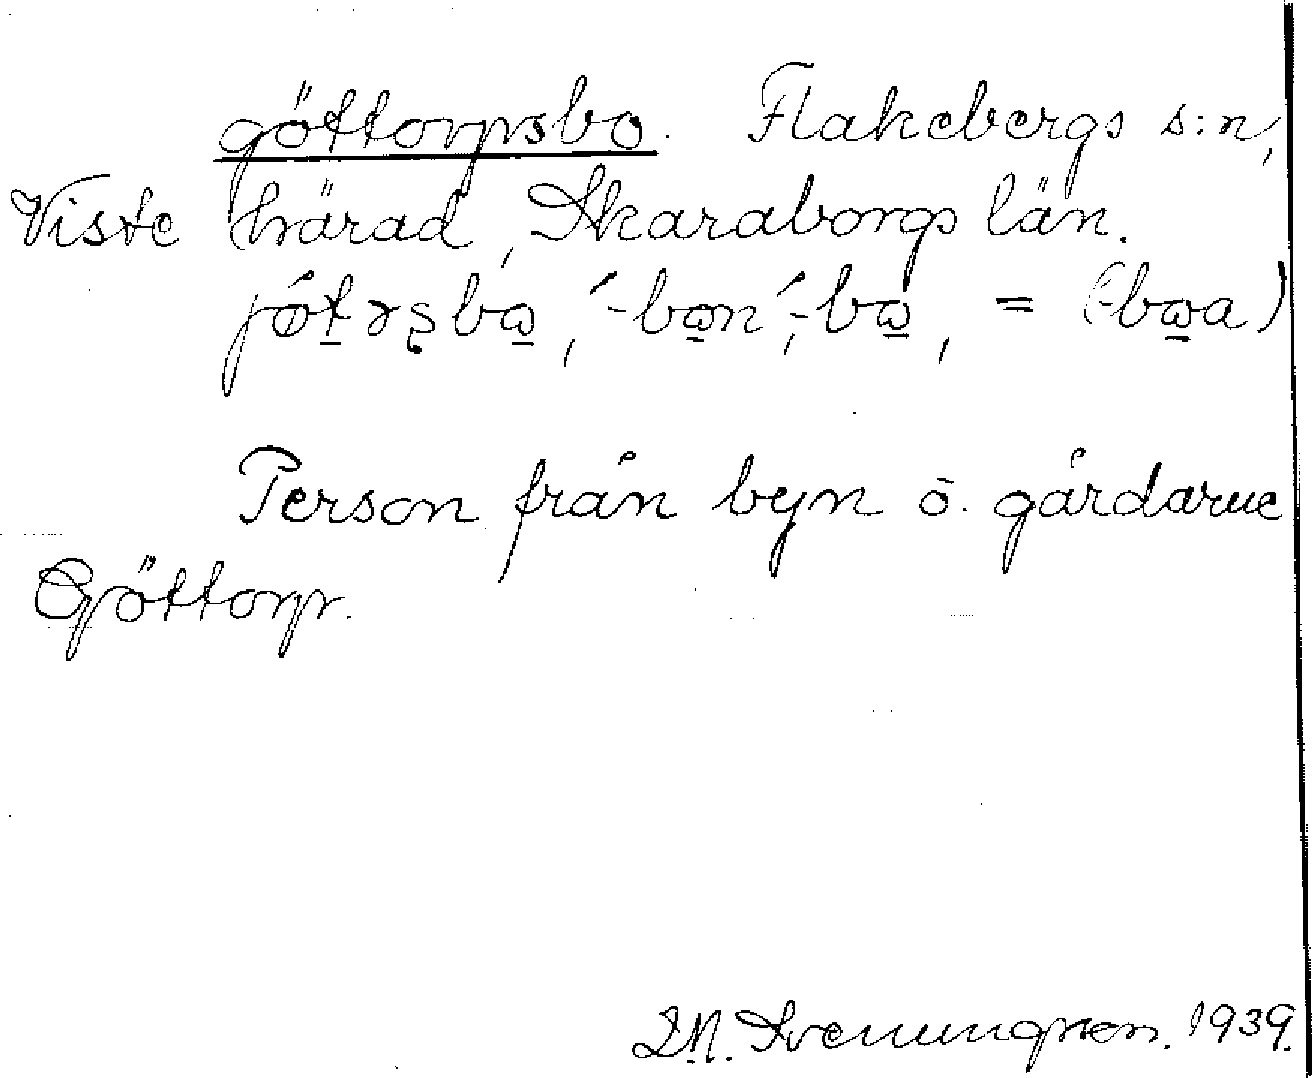 göttorpsbo. Flakebergs s:n,
Viste härad, Skaraborgs län.
jótrʂbω, ́-bωn, ́-bω, = (-bωa)
Person från byn o. gårdarne
Göttorp.
Svenungsson. 1939.